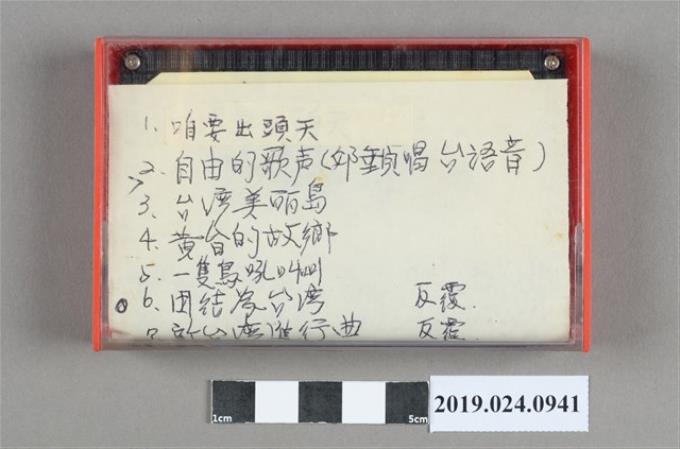 1. 咱要出頭天
2. 自由的歌声(邓鎮唱台語音)
3. 台湾美丽島
4. 黄昏的故鄉
5. 一隻鳥吼啾啾
6. 团結為台湾 反覆.
7. 台湾進行曲 反覆.
1cm 5cm
2019.024.0941